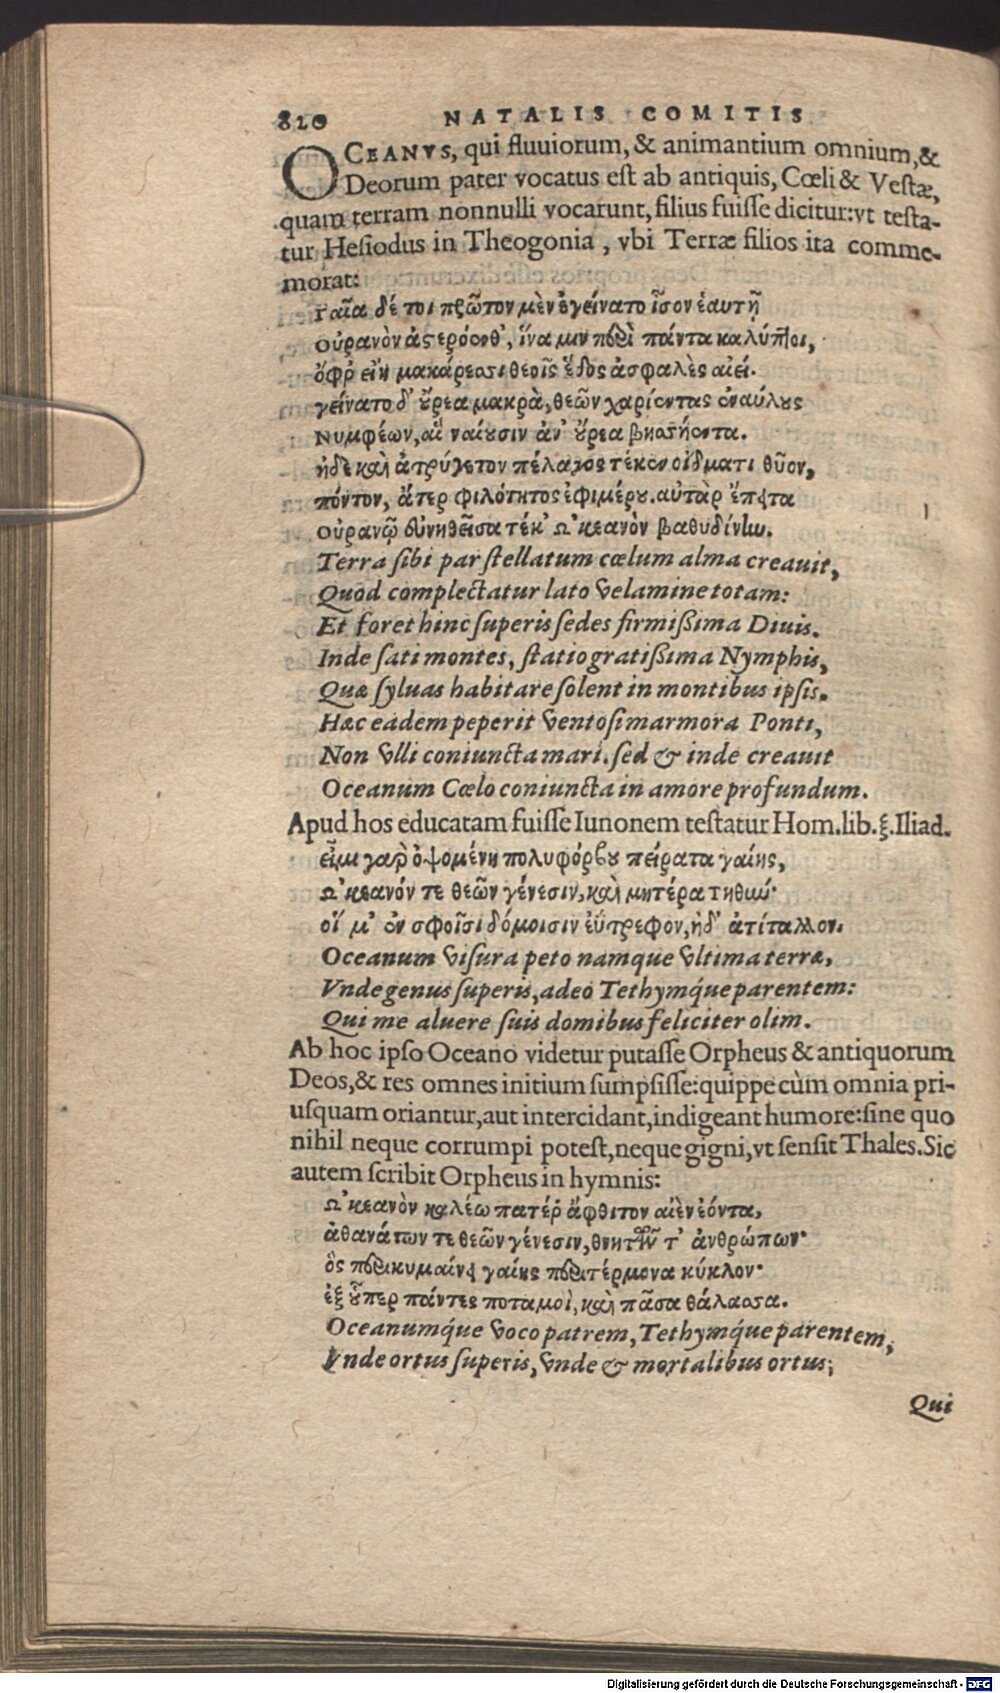 820 NATALIS COMITIS
OCEANVS, qui fluuiorum, & animantium omnium, &
Deorum pater vocatus est ab antiquis, Cœli & Vestæ,
quam terram nonnulli vocarunt, filius fuisse dicitur: vt testa-
tur Hesiodus in Theogonia, vbi Terræ filios ita comme-
morat:
Γαῖα δέ τοι πρῶτον μὲν ἐγείνατο ἶσον ἑαυτῇ
οὐρανὸν ἀστερόενθ', ἵνα μιν περὶ πάντα καλύπτοι,
ὄφρ' εἴη μακάρεσσι θεοῖς ἕδος ἀσφαλὲς αἰεί.
γείνατο δ' οὔρεα μακρὰ, θεῶν χαρίεντας ἐναύλους
Νυμφέων, αἳ ναίουσιν ἀν' οὔρεα βησσήεντα.
ἠδὲ καὶ ἀτρύγετον πέλαγος τέκεν οἴδματι θῦον,
πόντον, ἄτερ φιλότητος ἐφιμέρου. αὐτὰρ ἔπειτα
οὐρανῷ εὐνηθεῖσα τέκ' Ὠκεανὸν βαθυδίνην.
Terra sibi par stellatum cœlum alma creauit,
Quod complectatur lato velamine totam:
Et foret hinc superis sedes firmissima Diuis.
Inde sati montes, statio gratissima Nymphis,
Quæ syluas habitare solent in montibus ipsis.
Hæc eadem peperit ventosi marmora Ponti,
Non vlli coniuncta mari. sed & inde creauit
Oceanum Cœlo coniuncta in amore profundum.
Apud hos educatam fuisse Iunonem testatur Hom. lib. ξ. Iliad.
εἶμι γὰρ ὀψομένη πολυφόρβου πείρατα γαίης,
Ὠκεανόν τε θεῶν γένεσιν, καὶ μητέρα τηθύν·
οἵ μ' ἐν σφοῖσι δόμοισιν ἐΰτρεφον, ἠδ' ἀτίταλλον.
Oceanum visura peto namque vltima terræ,
Vnde genus superis, adeò Tethymq́ue parentem:
Qui me aluere suis domibus feliciter olim.
Ab hoc ipso Oceano videtur putasse Orpheus & antiquorum
Deos, & res omnes initium sumpsisse: quippe cùm omnia pri-
usquam oriantur, aut intercidant, indigeant humore: sine quo
nihil neque corrumpi potest, neque gigni, vt sensit Thales. Sic
autem scribit Orpheus in hymnis:
Ὠκεανὸν καλέω πατέρ' ἄφθιτον αἰὲν ἐόντα,
ἀθανάτων τε θεῶν γένεσιν, θνητῶν τ' ἀνθρώπων·
ὃς περικυμαίνει γαίης περιτέρμονα κύκλον·
ἐξ οὗπερ πάντες ποταμοὶ, καὶ πᾶσα θάλασσα.
Oceanumq́ue voco patrem, Tethymq́ue parentem,
Vnde ortus superis, vnde & mortalibus ortus;
Qui
Digitalisierung gefördert durch die Deutsche Forschungsgemeinschaft - DFG